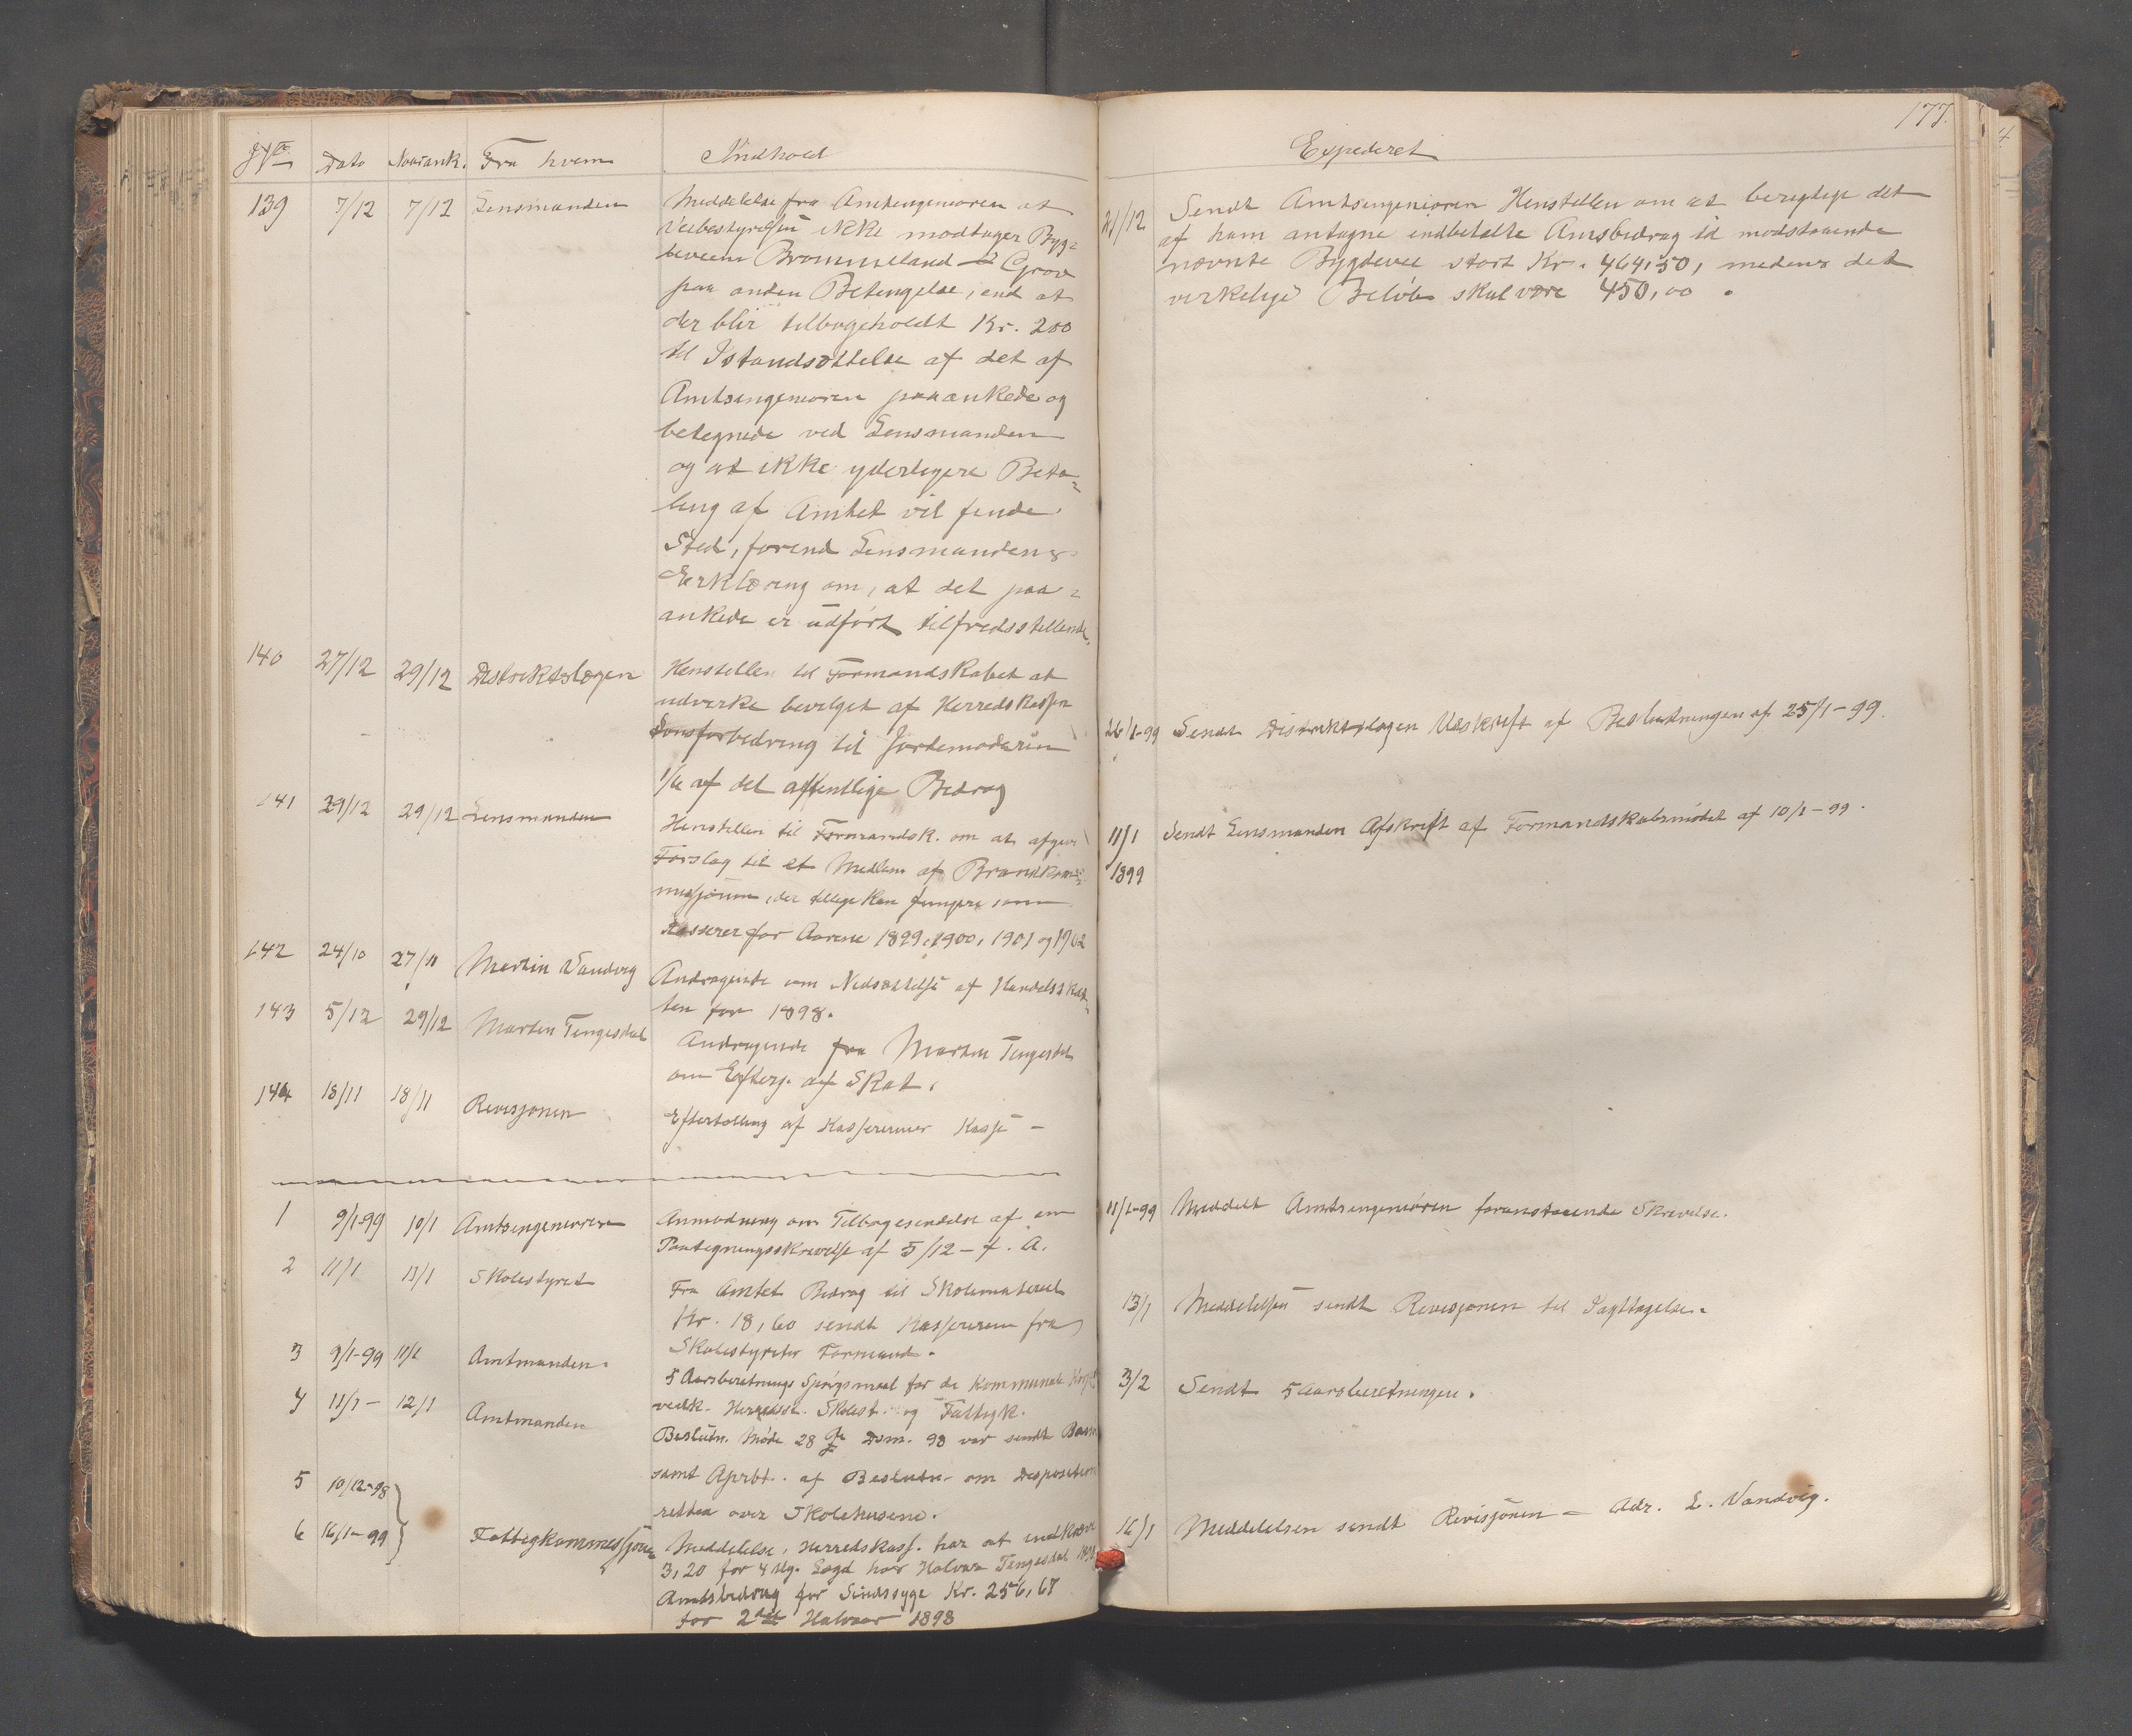 No Dato Modtank. Fra hvem Indhold
139 7/12 7/12 Lensmanden Meddelelse fra Amtsingeniøren at
Veibestyrelsen ikke modtager Byg-
deveien Brommeland - Grov
paa anden Betingelse, end at
der blir tilbageholdt Kr. 200
til Istandsættelse af det af
Amtsingeniøren paaankede og
betegnede ved Lensmanden
og at ikke yderligere Beta-
ling af Amtet vil finde
Sted, førend Lensmandens
Erklæring om, at det paa-
ankede er udført tilfredsstillende.
140 27/12 29/12 Distriktslægen Henstillen til Formandskabet at
udvirke bevilget af Herredskassen
Lønsforbedring til Jordemoderen
1/4 af det offentlige Bidrag
141 29/12 29/12 Lensmanden Henstillen til Formandsk. om at afgive
Forslag til et Medlem af Brandkom-
missjonen, der tillige kan fungere som
Kasserer for Aarene 1899, 1900, 1901 og 1902
142 24/10 27/11 Martin Vandvig Andragende om Nedsættelse af Handelsskat-
ten for 1898.
143 5/12 29/12 Morten Tengesdal Andragende fra Morten Tengesdal
om Efterg. af Skat.
144 18/11 18/11 Revisjonen Eftertælling af Kassererens Kasse -
1 9/1-99 10/1 Amtsingeniøren Anmodning om Tilbagesendelse af en
Paategningsskrivelse af 5/12 - f. A.
2 11/1 13/1 Skolestyret Fra Amtet Bidrag til Skolemateriel
Kr. 18,60 sendt Kassereren fra
Skolestyrets Formand.
3 9/1-99 11/1 Amtmanden. 5 Aarsberetnings Spørgsmaal for de kommunale
vedk. Herredsk. Skolest. og Fattigk.
4 11/1 - 12/1 Amtmanden Beslutn. Møde 28de Dsm. 98 var sendt
samt Aprbt. af Beslutn. om Disposition
retten over Skolehusene.
5 10/12-98
6 16/1-99 Fattigkommissjonen Meddelelse, Herredskass. har at indkræve
3,20 for 4 Dg. Lægd hos Halvar Tengesdal 1898
Amtsbidrag for Sindssyge Kr. 256,67
for 2det Halvaar 1898
177.
Expederet
21/12 Sendt Amtsingeniøren Henstillen om at berigtige det
af ham antagne indbetalte Amsbidrag til modstaaende
nævnte Bygdevei stort Kr. 464,50, medens det
virkelige Beløb skal være 450,00.
26/1-99 Sendt Distriktslægen Udskrift af Beslutningen af 25/1-99.
11/1 Sendt Lensmanden Afskrift af Formandskabsmødet af 10/1-99.
1899
11/1-99 Meddelt Amtsingeniøren foranstaaende Skrivelse.
13/1 Meddelelsen sendt Revisjonen til Iagttagelse.
3/2 Sendt 5 aarsberetningen.
16/1 Meddelelsen sendt Revisjonen - Adr. L. Vandvig.